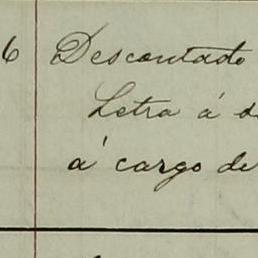 6 Descontado
Letra á d
á cargo de